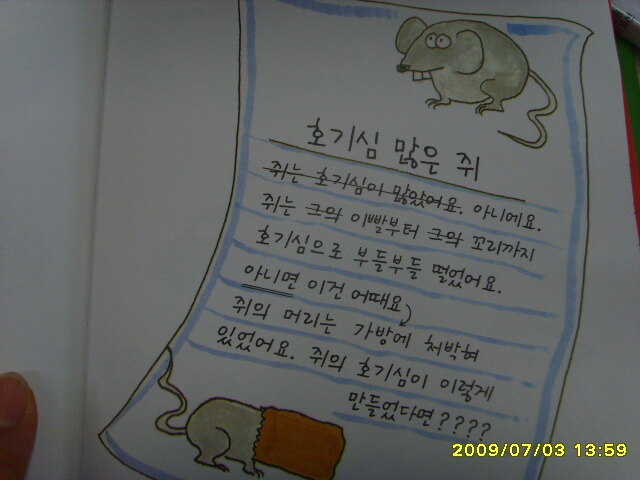 호기심 많은 쥐
쥐는 호기심이 많았어요. 아니에요.
쥐는 그의 이빨부터 그의 꼬리까지
호기심으로 부들부들 떨었어요.
아니면 이건 어때요
쥐의 머리는 가방에 처박혀
있었어요. 쥐의 호기심이 이렇게
만들었다면????
2009/07/03 13:59